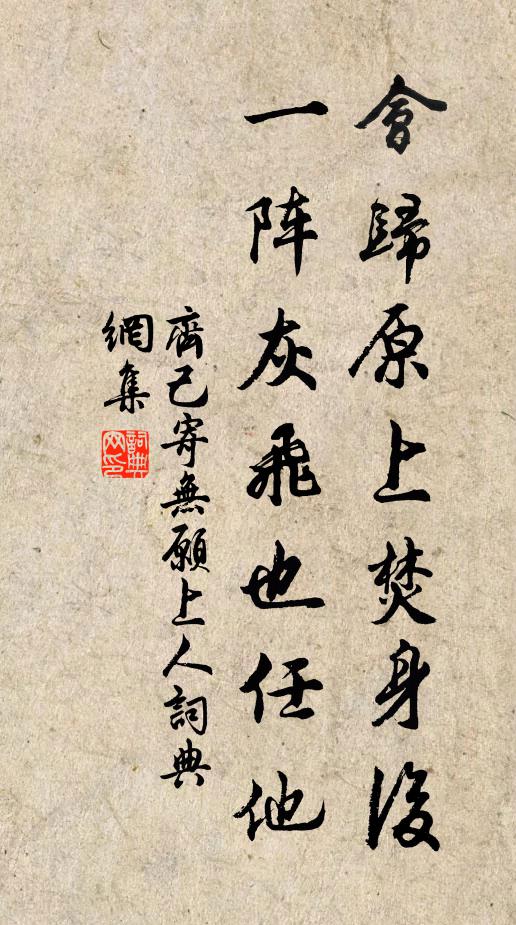 會歸原上焚身後
一阵灰飛也任他
齊己寄無願上人詞典
網集
詞典
网印